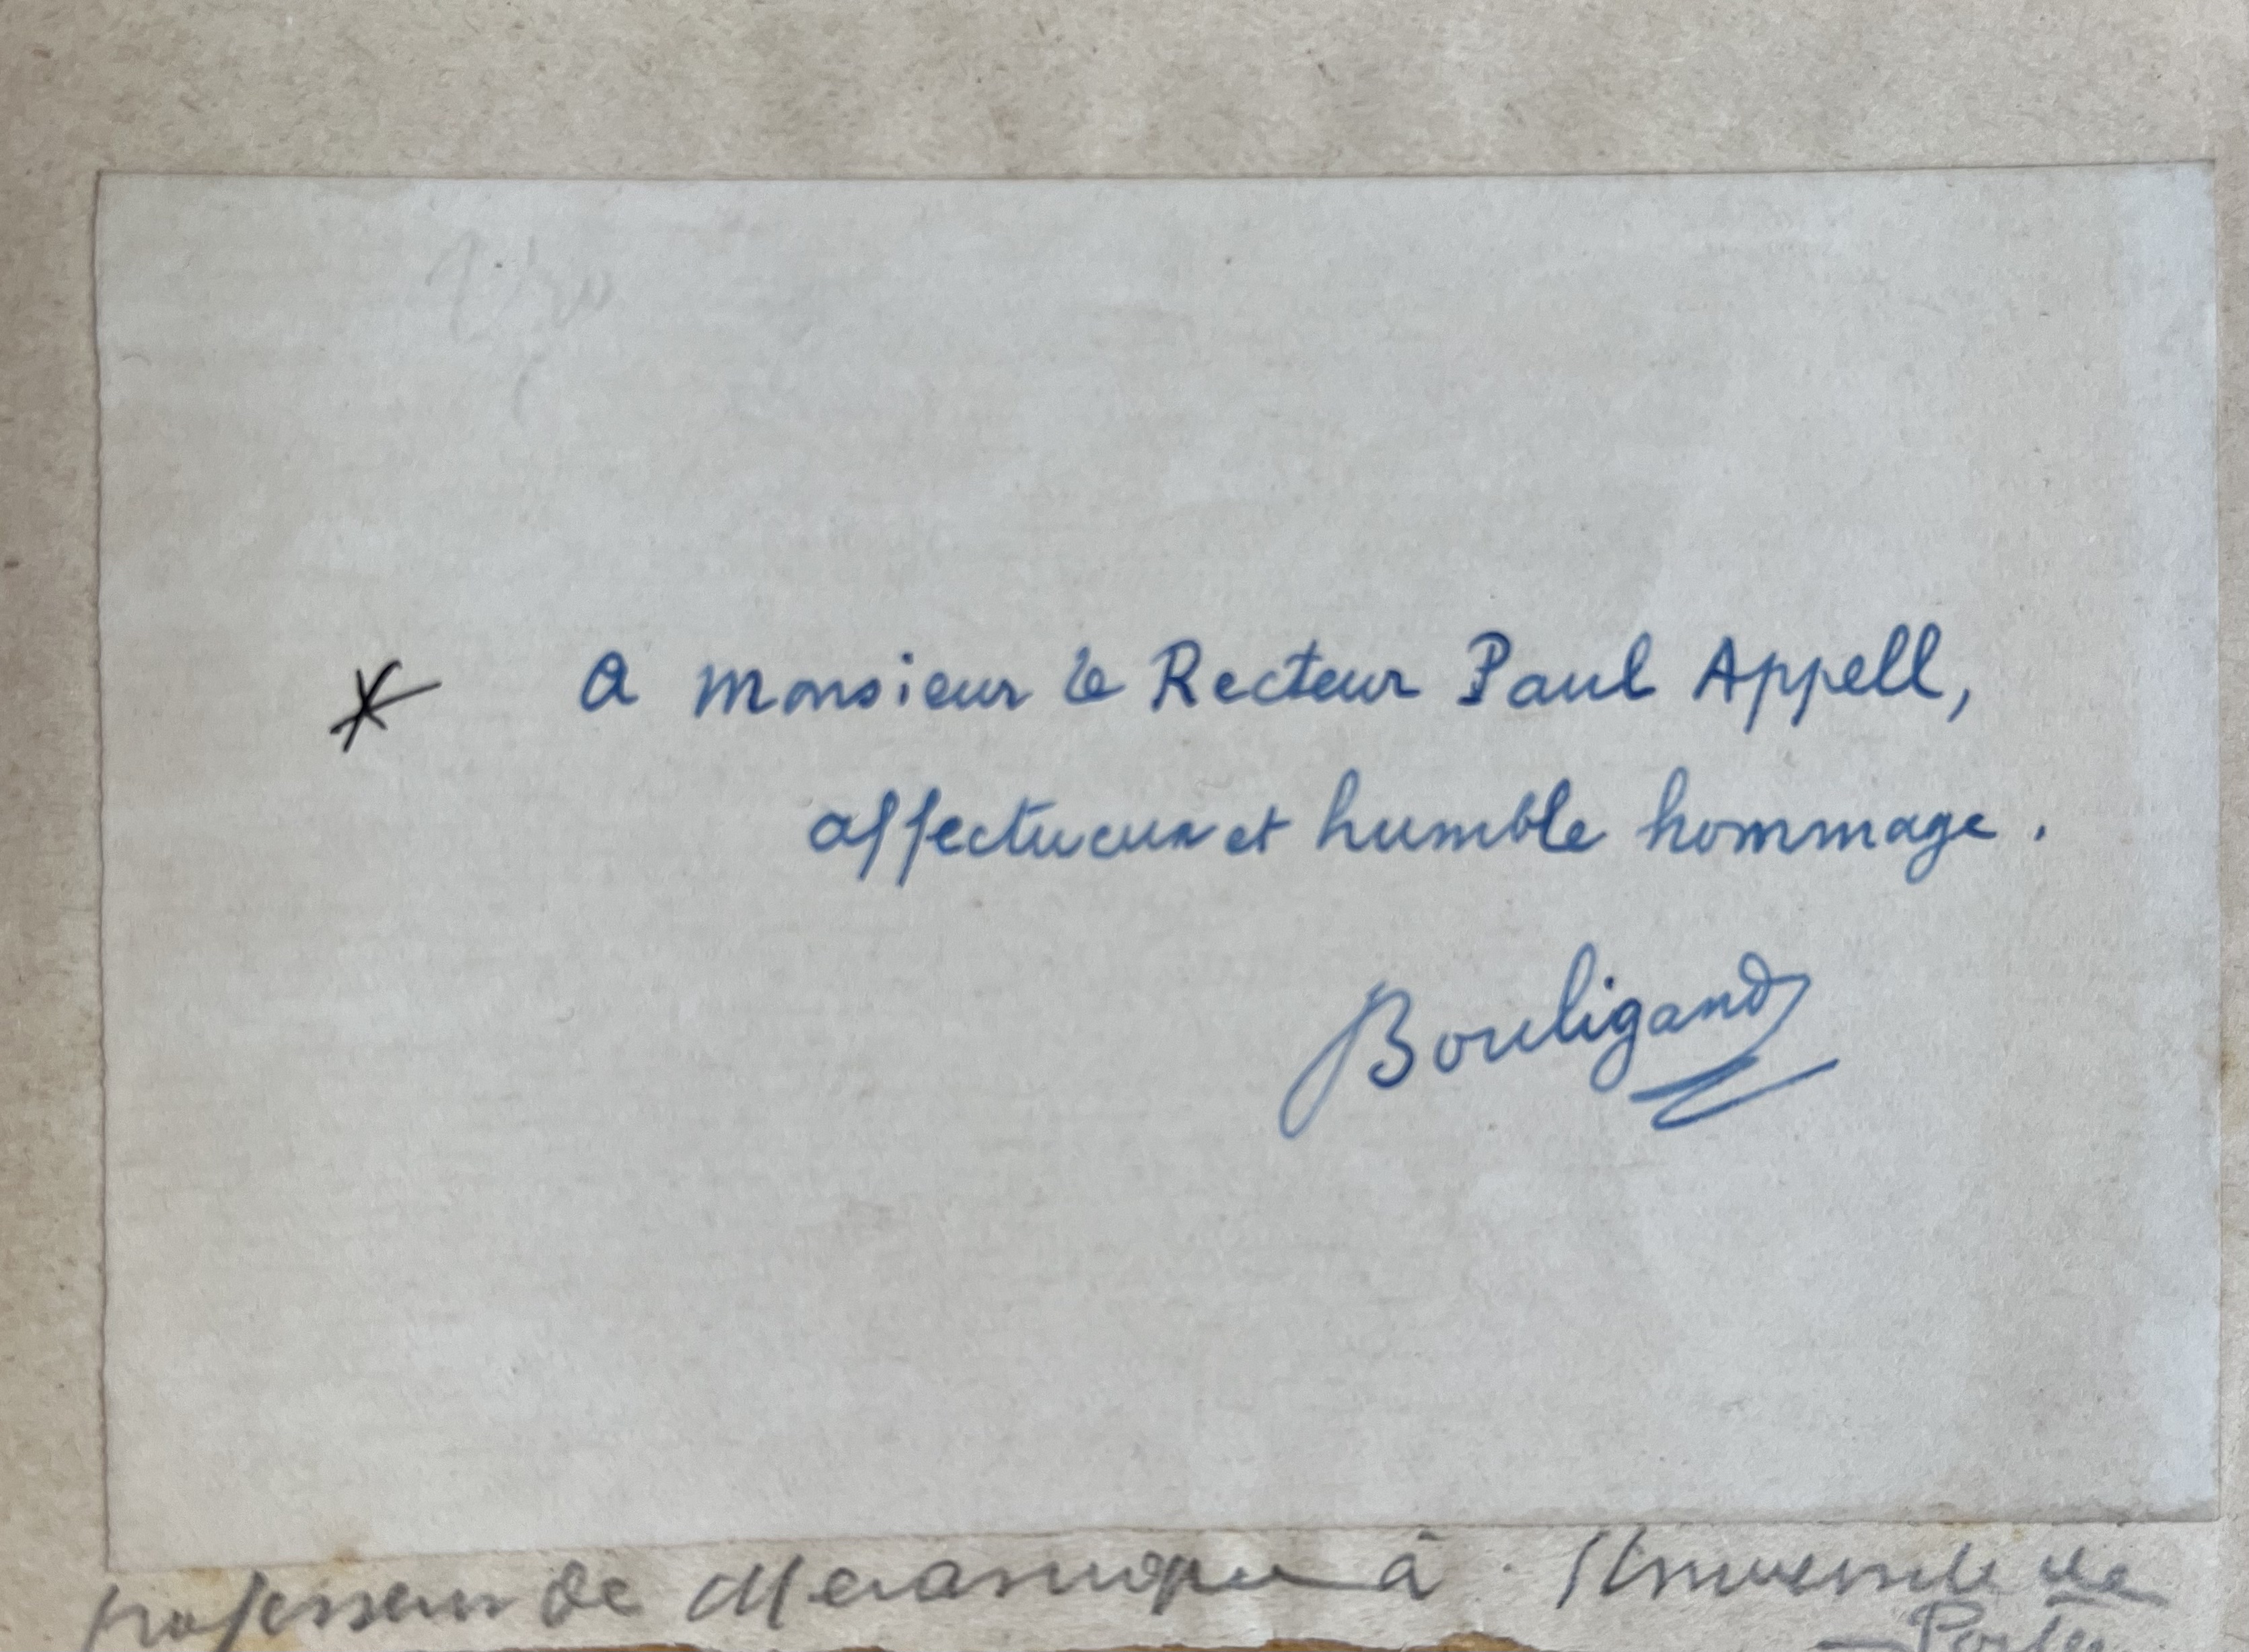 A Monsieur le Recteur Paul Appell,
affectueux et humble hommage.
Bouligand
professeur de Mécanique à l'Université de